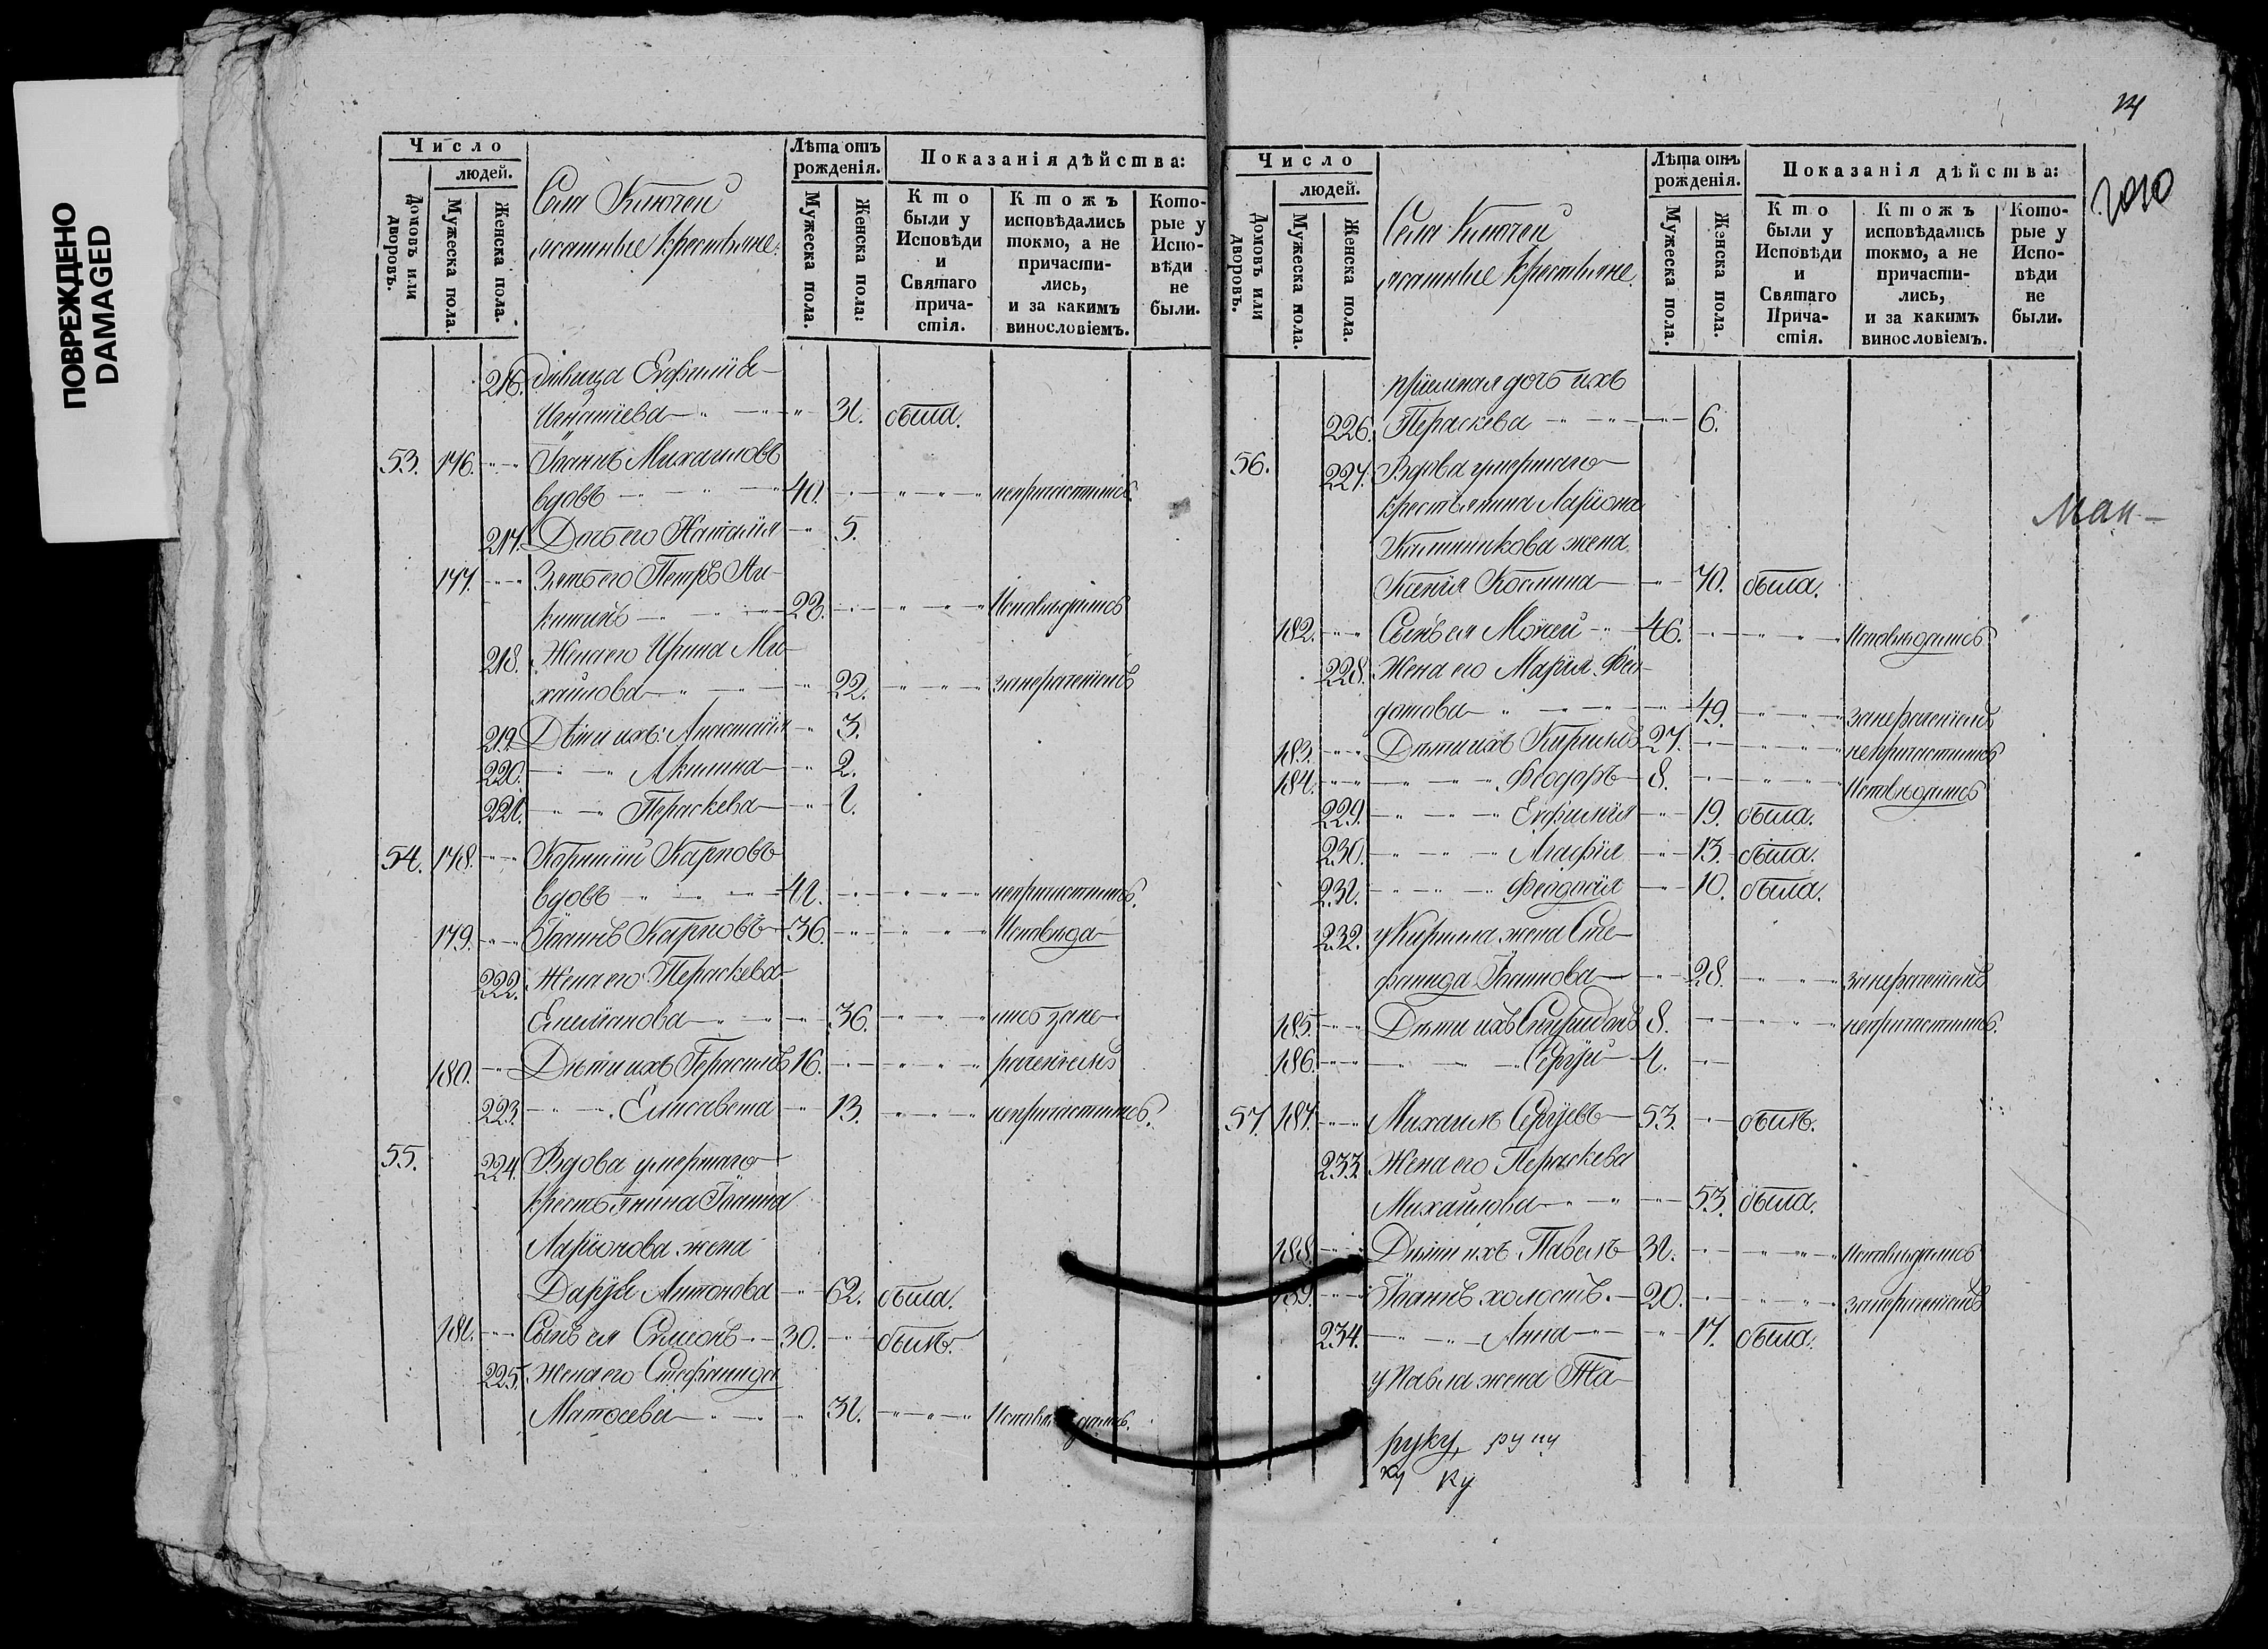 ПОВРЕЖДЕНО
DAMAGED
Число
людей.
Домовъ или дворовъ.
Мужеска пола.
Женска пола.
Села Ключей
ясашные крестьяне.
Лѣта отъ рожденія.
Мужеска пола.
Женска пола:
Показанія дѣйства:
Кто были у Исповѣди и Святаго прича-стія.
Ктожъ исповѣдались токмо, а не причасти-лись, и за какимъ винословіемъ.
Кото-рые у Испо-вѣди не были.
216. дѣвица Евфимія
Игнатіева 31. была.
53. 176. Іоаннъ Михаиловъ
вдовъ 40. непричастились
217. Дочь его Наталія 5.
177. Зять его Петръ Ни-
китинъ 22. Исповѣдались
218. Жена его Ирина Ми-
хайлова 22. занераченіемъ
219. Дѣти ихъ: Анастасія 3.
220. Акилина 2.
221. Параскева 1.
54. 178. Корнилій Карповъ
вдовъ 41. непричастились.
179. Іоаннъ Карповъ 36. Исповѣда-
222. Жена его Параскева
Емиліанова 36. лись зане-
180. Дѣти ихъ Герасимъ 16. раченіемъ
223. Елисавета 13. непричастились.
55. 224. Вдова умершаго
крестьянина Іоанна
Ларіонова жена
Дарья Антонова 62. была.
181. Сынъ ея Симеонъ 30. былъ.
225. Жена его Стефанида
Матѳеева 31. Исповѣдались.
14
Число
людей.
Домовъ или дворовъ.
Мужеска пола.
Женска пола.
Села Ключей
ясашные крестьяне.
Лѣта отъ рожденія.
Мужеска пола.
Женска пола.
Показанія дѣйства:
Кто были у Исповѣди и Святаго Прича-стія.
Ктожъ исповѣдались токмо, а не причасти-лись, и за какимъ винословіемъ.
Кото-рые у Испо-вѣди не были.
пріемная дочь ихъ
226. Параскева 6.
56. 227. Вдова умершаго
крестьянина Ларіона
Калинникова жена
Ксенія Козмина 70. была.
182. Сынъ ея Моѵсей 46. Исповѣдались
228. Жена его Марія Ѳео-
дотова 49. занераченіемъ
183. Дѣти ихъ Кириллъ 27. непричастились
184. Ѳеодоръ 8. Исповѣдались
229. Евфимія 19. была.
230. Агафія 13. была.
231. Ѳеодосія 10. была.
232. у Кирила жена Сте-
фанида Іоаннова 28. занераченіемъ
185. Дѣти ихъ Спиридонъ 8. непричастились.
186. Сергѣй 1.
57. 187. Михаилъ Сергѣевъ 53. былъ.
233. Жена его Параскева
Михайлова 53. была.
188. Дѣти ихъ Павелъ 31. Исповѣдались
189. Іоаннъ холостъ. 20. занераченіемъ
234. Анна 17. была.
у Павла жена Та-
руку, ру
ку ку